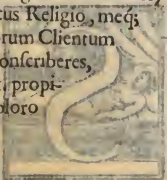 tus Religio, meq;
orum Clientum
onscriberes,
t, propi-
oloro